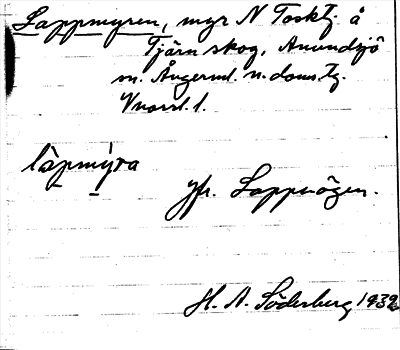 Lappmyren, myr N Tosktj. å
Tjärn skog, Anundsjö
sn. Ångerml. n. doms tg.
Vnorrl. l.
låpmỳra
jfr. Lappvägen.
H. A. Söderberg 1932